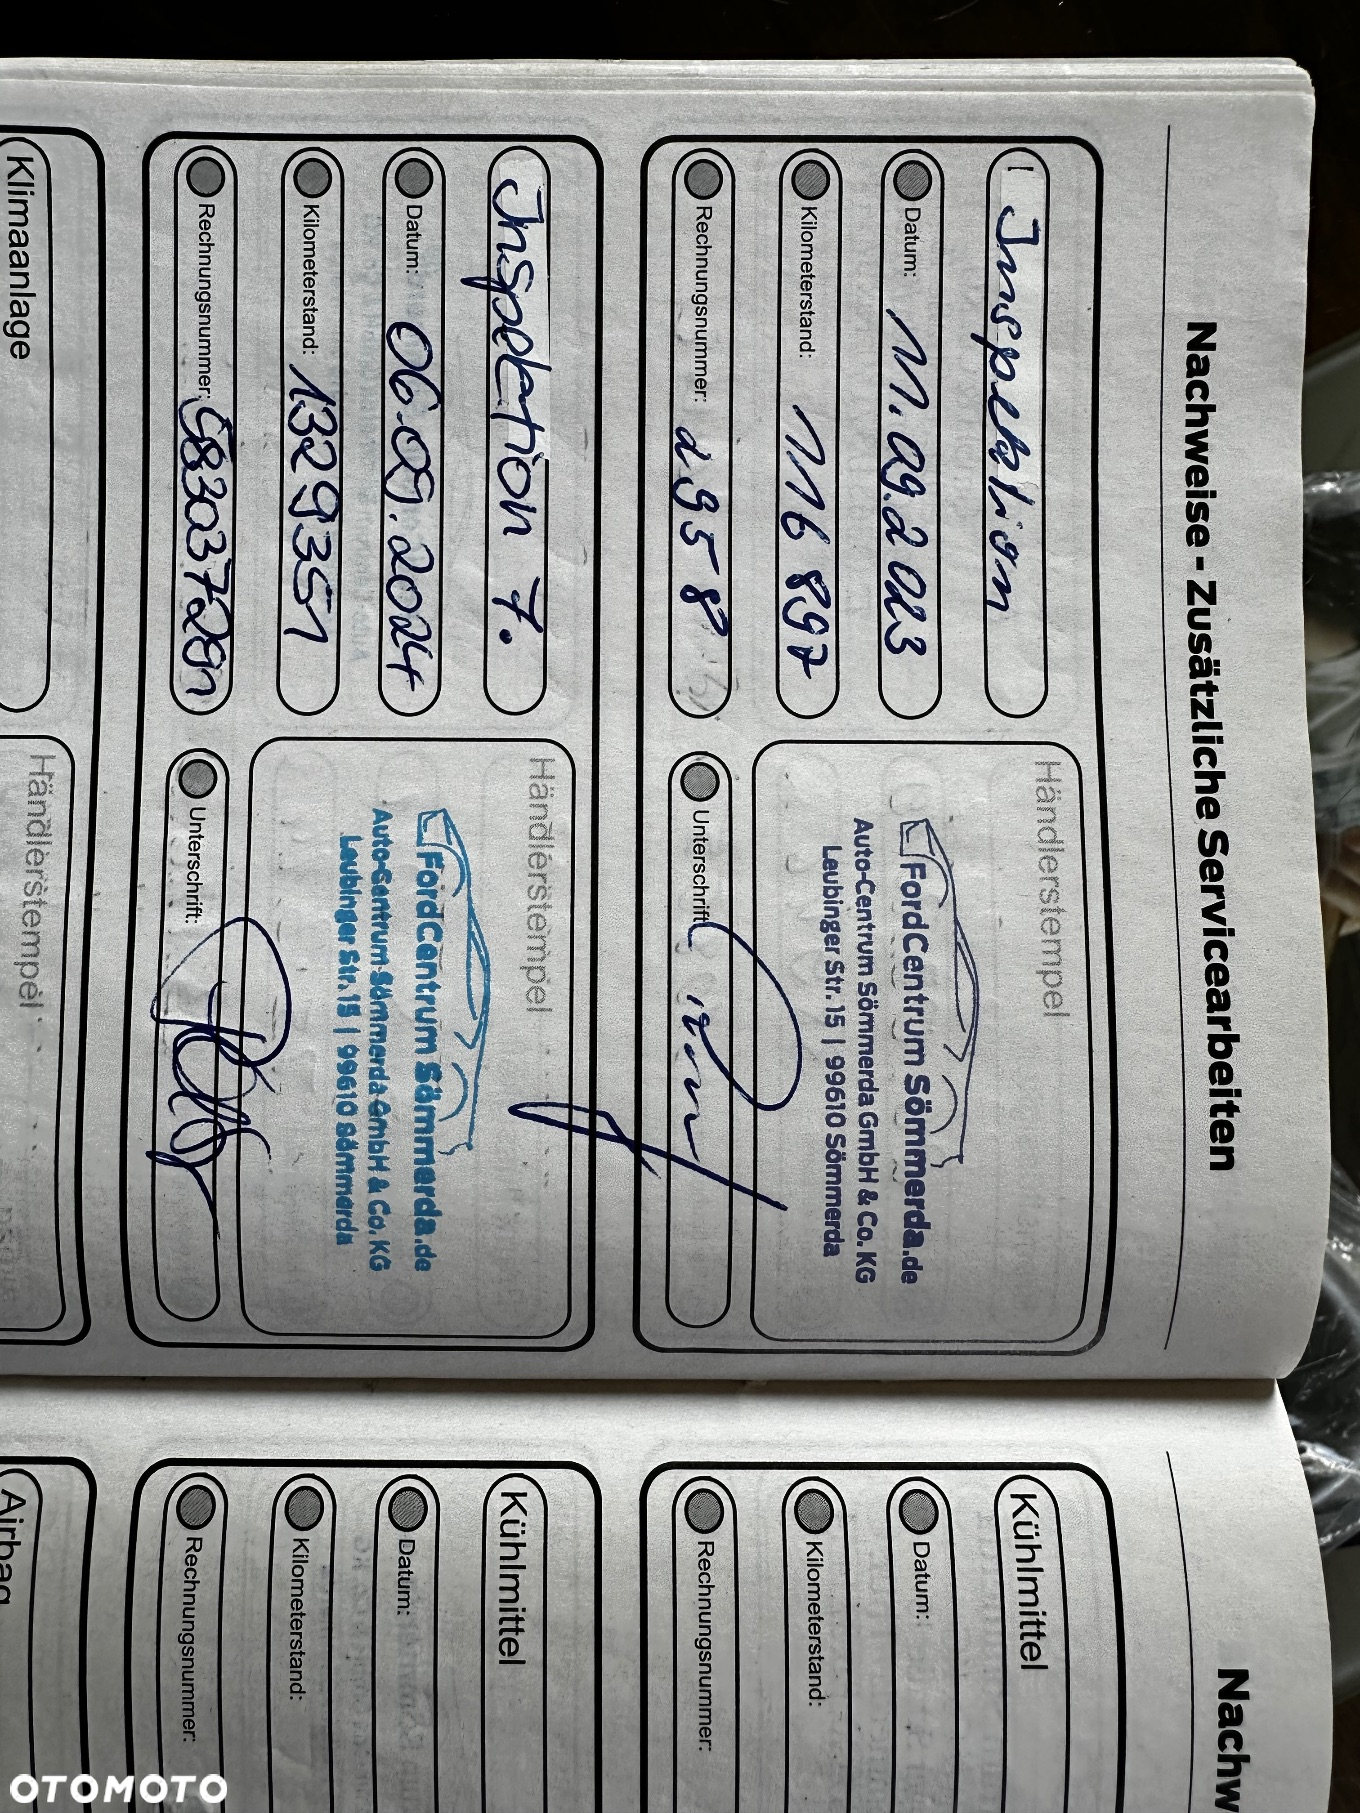 Nachweise - Zusätzliche Servicearbeiten
Inspektion
Datum: 11.09.2023
Kilometerstand: 116 897
Rechnungsnummer: 2958
Händlerstempel
FordCentrum Sömmerda.de
Auto-Centrum Sömmerda GmbH & Co. KG
Leubinger Str. 15 | 99610 Sömmerda
Unterschrift:
Inspektion 7.
Datum: 06.09.2024
Kilometerstand: 132 951
Rechnungsnummer:
Händlerstempel
FordCentrum Sömmerda.de
Auto-Centrum Sömmerda GmbH & Co. KG
Leubinger Str. 15 | 99610 Sömmerda
Unterschrift:
Klimaanlage
Händlerstempel
Nachw
Kühlmittel
Datum:
Kilometerstand:
Rechnungsnummer:
Kühlmittel
Datum:
Kilometerstand:
Rechnungsnummer:
Airbag
OTOMOTO